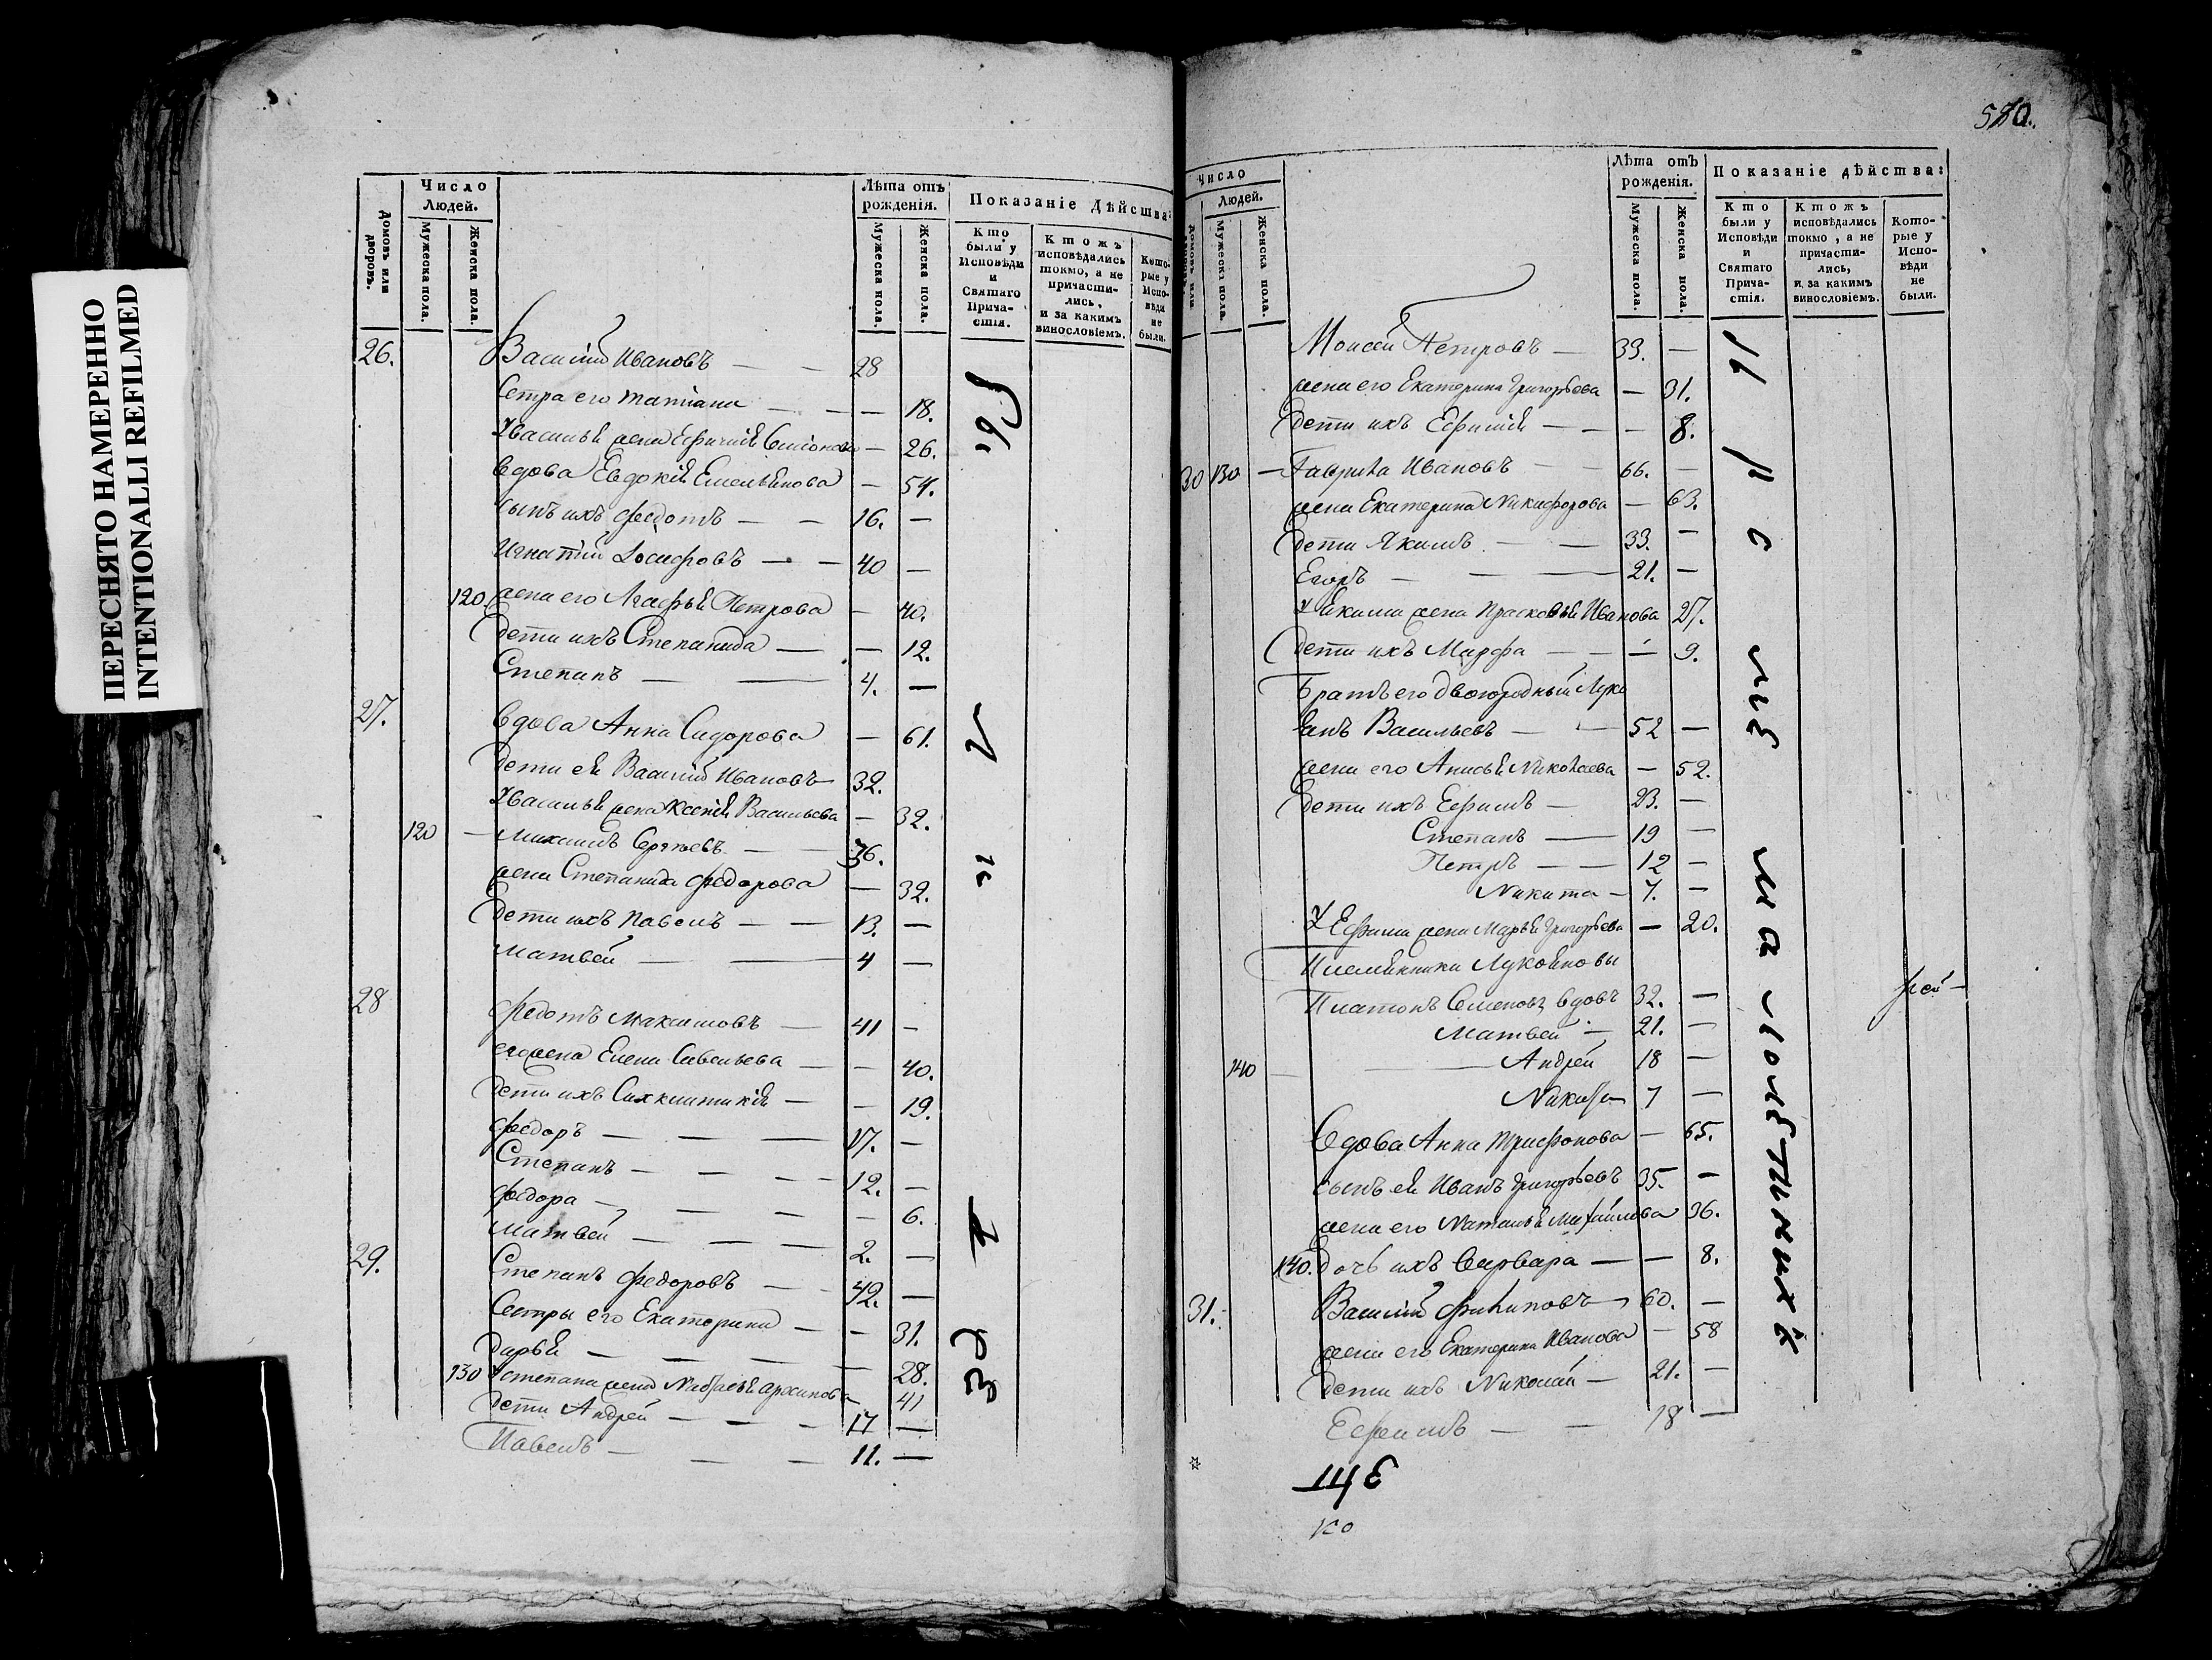 ПЕРЕСНЯТО НАМЕРЕННО
INTENTIONALLI REFILMED
Домовъ или дворовъ.
Число Людей.
Мужеска пола.
Женска пола.
Лѣта отъ рожденія.
Мужеска пола.
Женска пола.
Показаніе Дѣйства:
Кто были у Исповѣди и Святаго Причастія.
Ктожъ исповѣдались токмо, а не причастились, и за какимъ винословіемъ.
Которые у Исповѣди не были.
26. Василій Ивановъ — — 28
Сетра его татіана — — — 18.
Уваилья жена Ефимія Симонова — 26.
Вдова Евдокія Емельянова — 54.
сынъ ихъ Федотъ — — 16. —
Игнатій Iосифовъ — — 40 —
120. жена его Агафья Петрова — 40.
дети ихъ Степанида — — 12.
Степанъ — — 4. —
27. Вдова Анна Сидорова — 61.
дети ея Василій Ивановъ 32.
Увасилья жена Ксенія Васильева — 32.
120 — Михаилъ Сергѣевъ — — 36.
жена Степанида Федорова — 32.
дети ихъ павелъ — — 13. —
матвей — — 4 —
28 Федотъ Максимовъ — 41 —
его жена Елена Савельева — — 40.
дети ихъ — — 19.
Федоръ — — — 17. —
Степанъ — — — 12. —
Федора — — — — 6.
Матвей — — — 2. —
29. Степанъ Федоровъ — 42. —
Сестры его Екатерина — — 31.
дарья — — — — 28.
130 Устепана жена Архипова 41
дети Андрей — — — 17 —
Павелъ — — — 11. —
Бы
л
и
580.
Число Людей.
Мужеска пола.
Женска пола.
Лѣта отъ рожденія.
Мужеска пола.
Женска пола.
Показаніе дѣйства:
Кто были у Исповѣди и Святаго Причастія.
Ктожъ исповѣдались токмо, а не причастились, и за какимъ винословіемъ.
Которые у Исповѣди не были.
Моисей Петровъ — 33. —
жена его Екатерина Григорьева — 31.
дети ихъ Ефимія — — — 8.
30 130 — Гаврила Ивановъ — — 66. —
жена Екатерина Никифорова — 63.
дети Якимъ — — 33. —
Егоръ — — 21. —
У Якима жена Прасковья Иванова 27.
дети ихъ Марфа — — — 9.
Братъ его двоюродный Луко
янъ Васильевъ — — 52 —
жена его Анисья Николаева — 52.
дети ихъ Ефимъ — 23. —
Степанъ — 19 —
Петръ — — 12 —
Никита — 7. —
У Ефима жена Марья Григорьева — 20.
Племянники Лукояновы
Платонъ Семеновъ вдовъ 32. —
Матвей — 21. —
140 — — Андрей 18 —
7 —
Вдова Анна Трифонова — 65.
сынъ ея Иванъ Григорьевъ 35. —
жена его Наталья Михайлова 36.
140. дочь ихъ Варвара — — 8.
31. Василій Филиповъ — 60. —
жена его Екатерина Иванова — 58
дети ихъ Николай — 21. —
Ефимъ — — 18 —
малолѣтнихъ